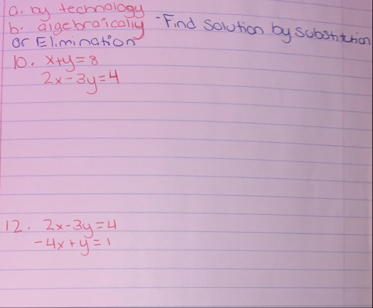 a. by technology
b. algebraically - Find solution by substitution
or Elimination
10. x+y=8
2x-3y=4
12. 2x-3y=4
-4x+y=1